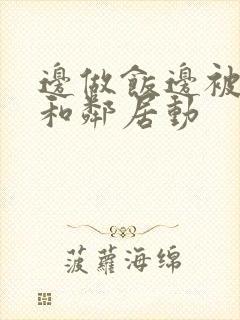 邊做飯邊被
和鄰居動
菠蘿海綿